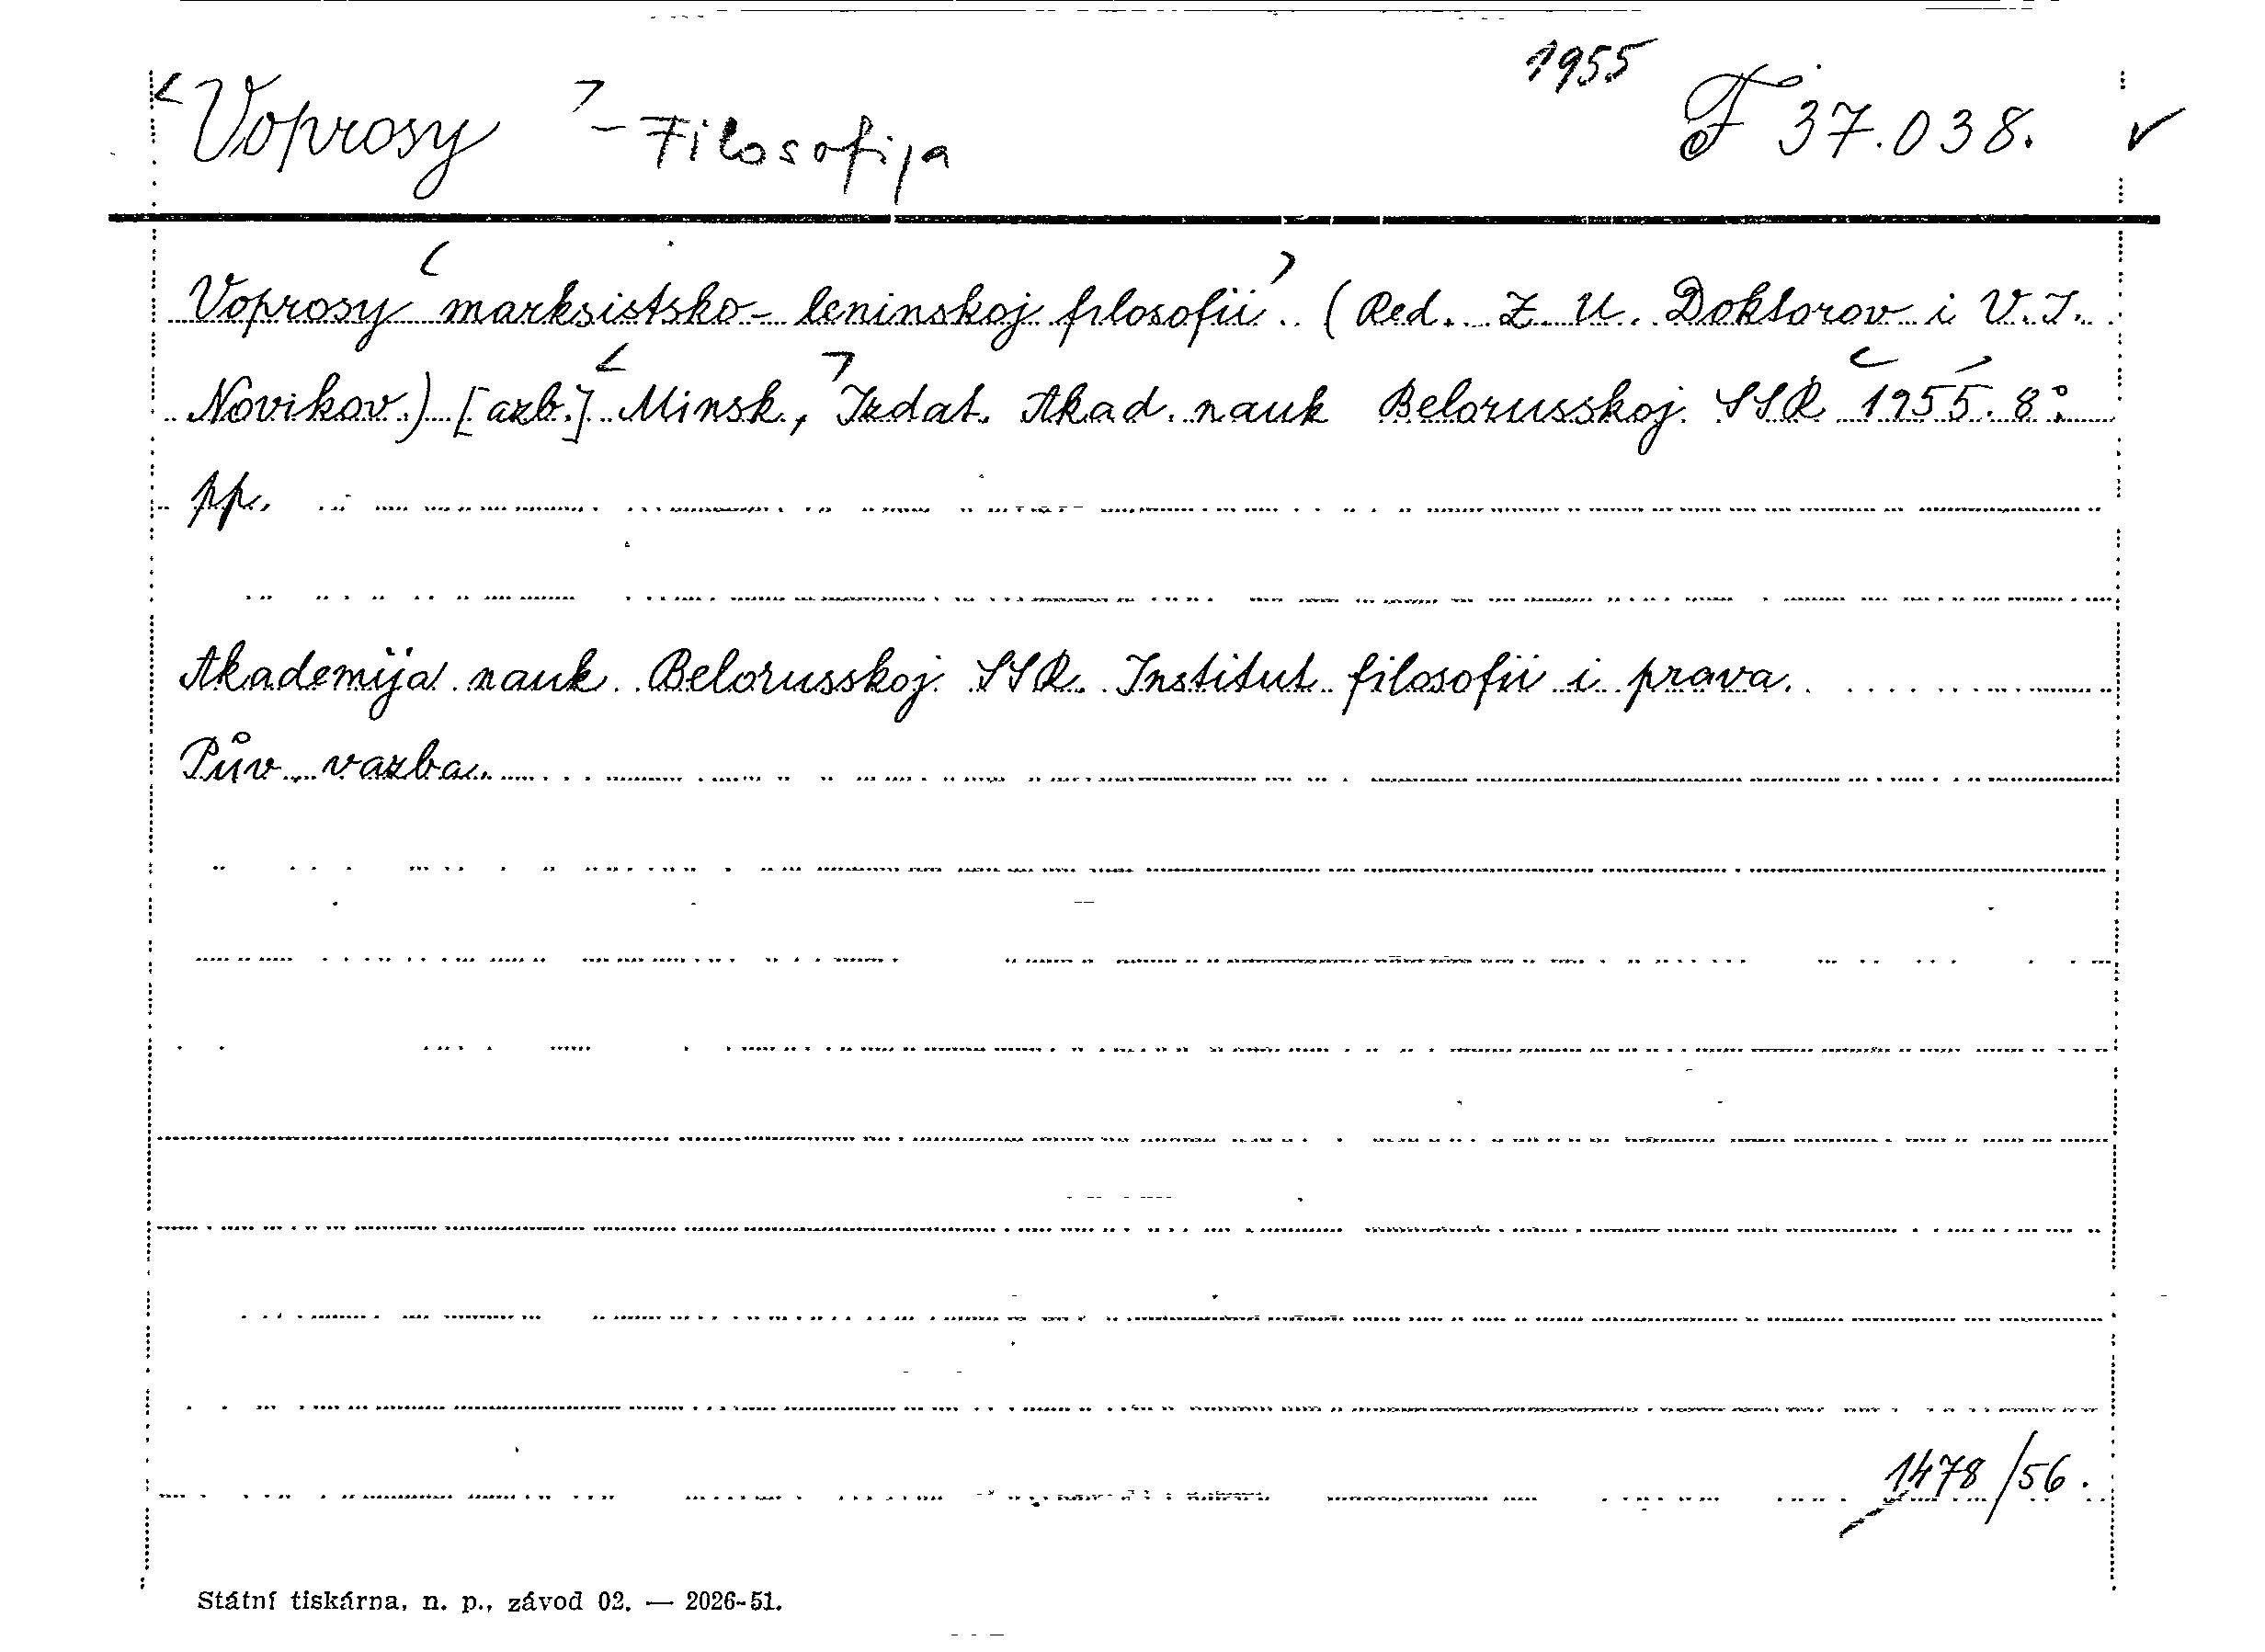 1955
<Voprosy> - Filosofija F 37.038. ✓
Voprosy <marksistsko-leninskoj filosofii>. (Red. Z. U. Doktorov i V. I.
Novikov.) [azb.] <Minsk,> Izdat. Akad. nauk Belorusskoj SSR <1955>. 8°.
pp.
Akademija nauk Belorusskoj SSR. Institut filosofii i prava.
Pův. vazba.
1478/56.
Státní tiskárna, n. p., závod 02. — 2026-51.